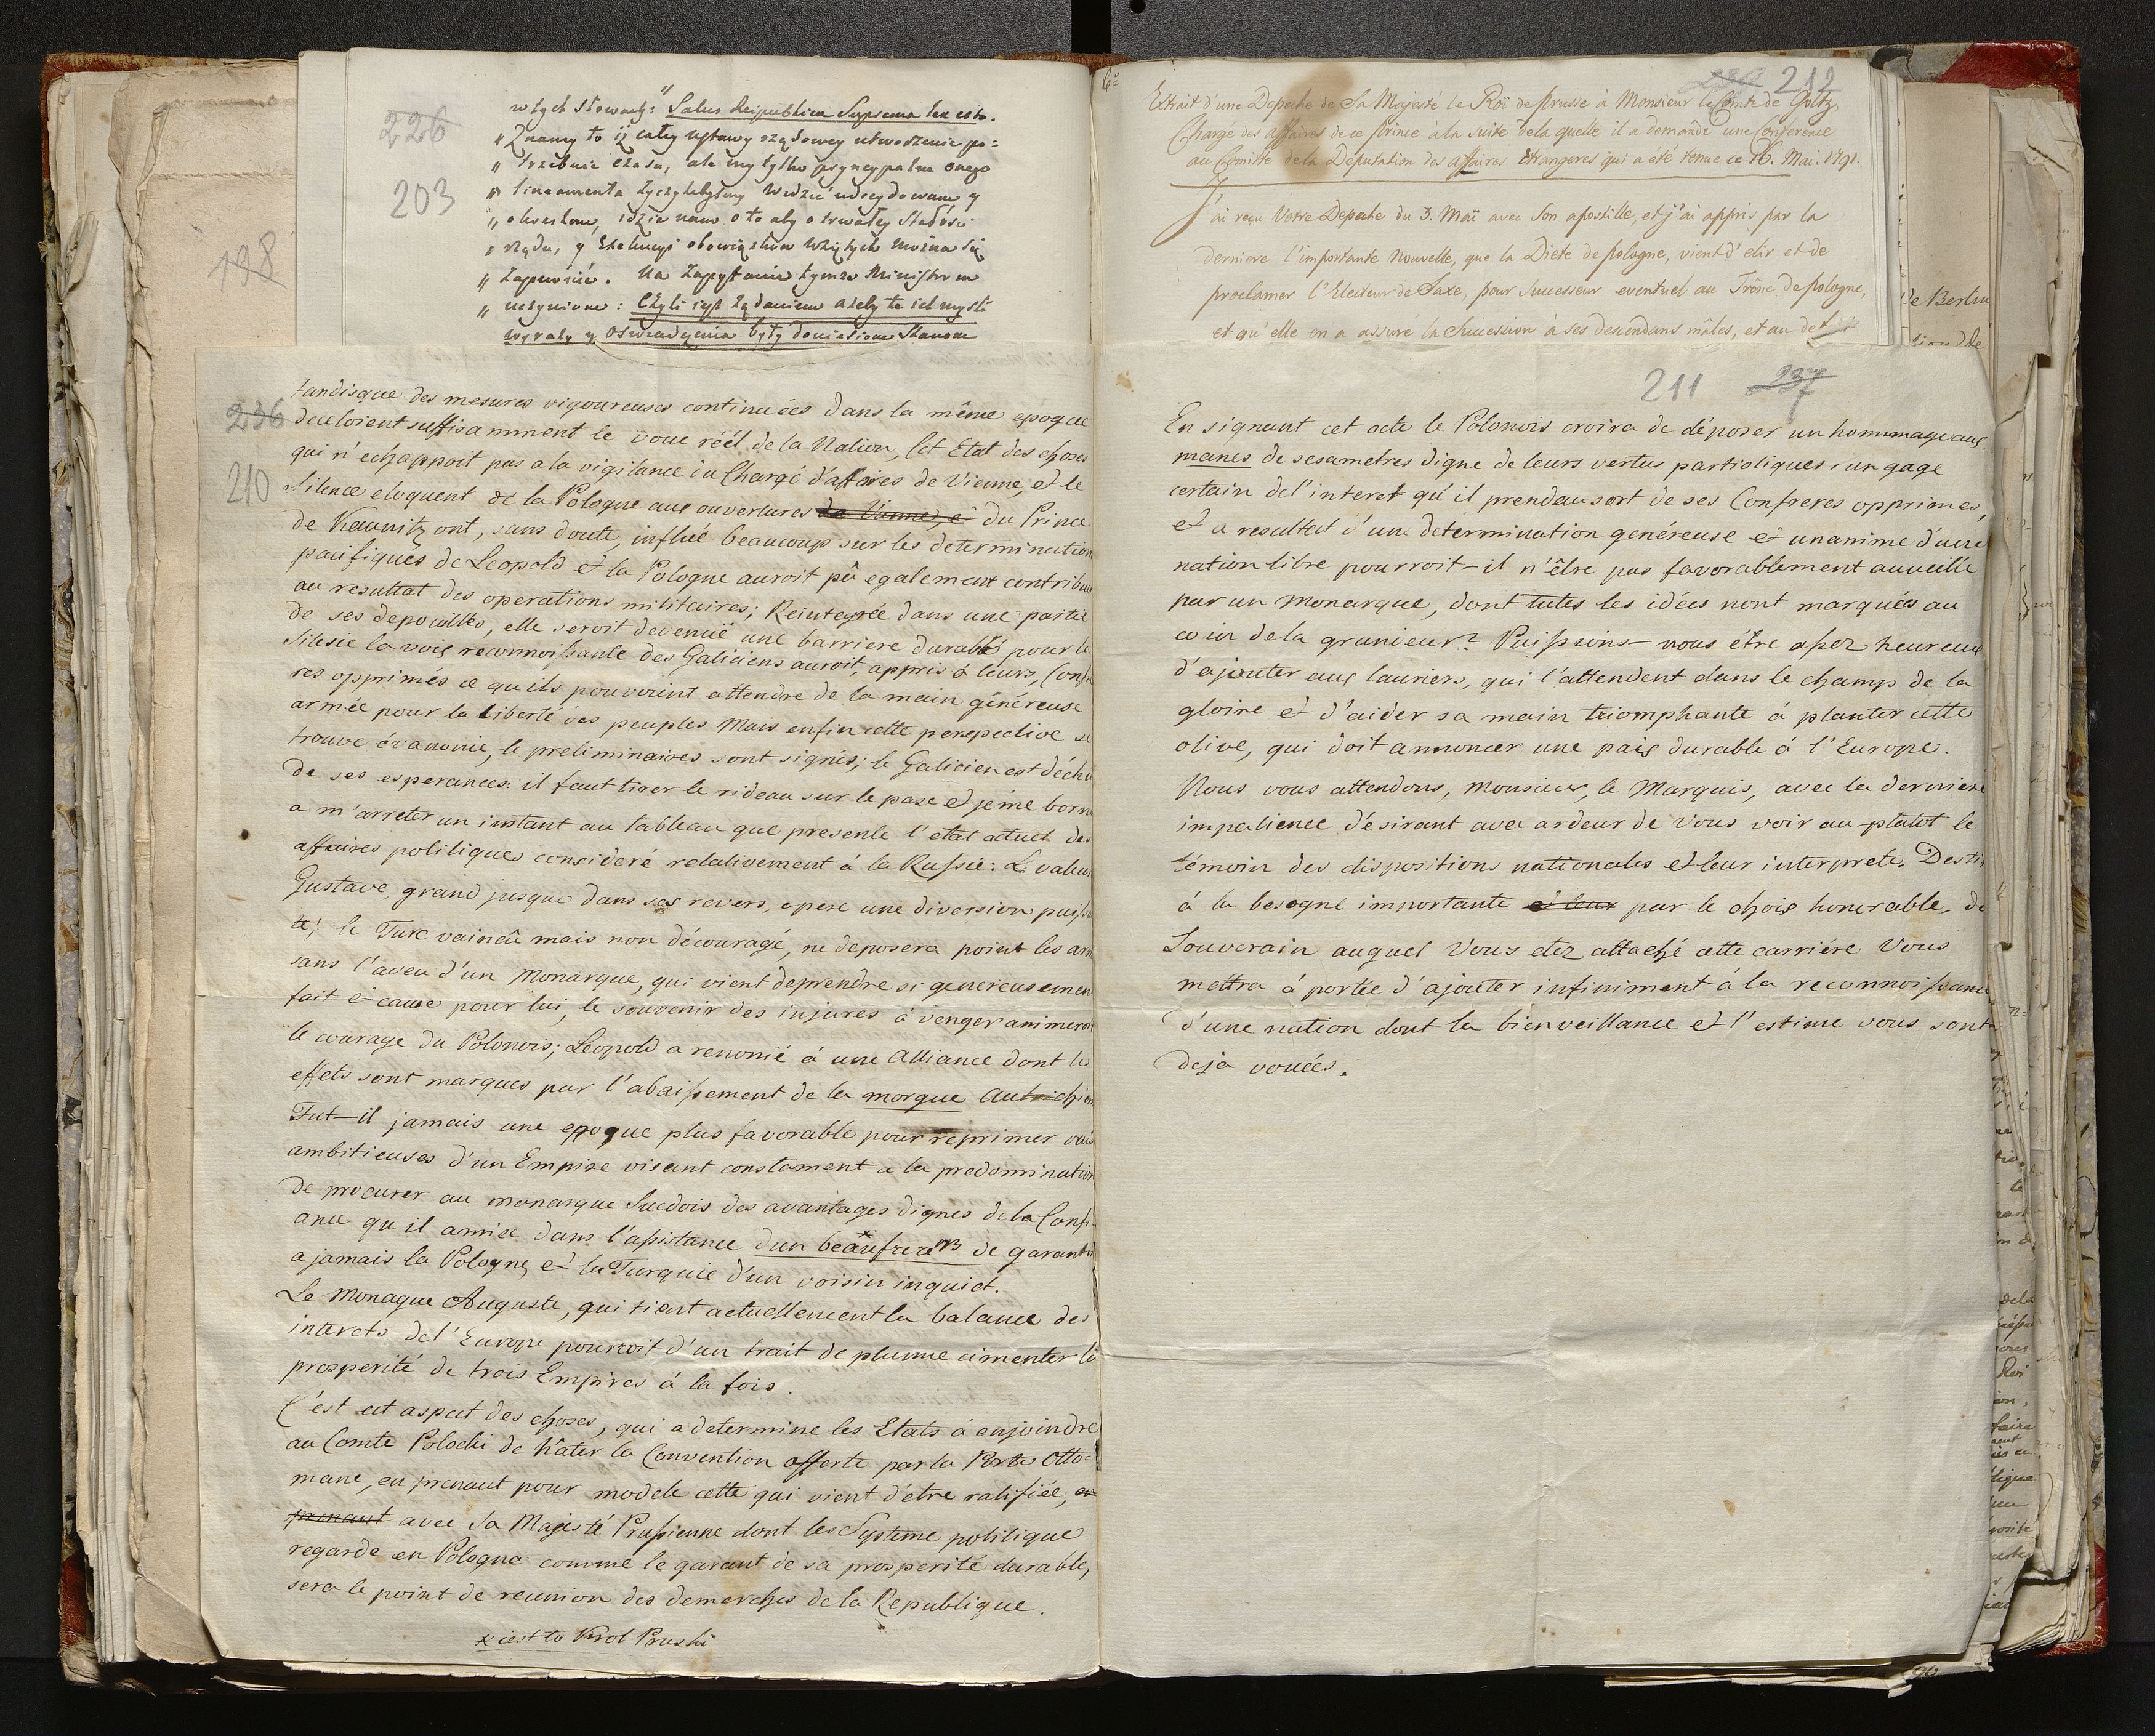 226
203
198
w tych słowach: "Salus Reipublica Suprema lex esto.
„ Znamy to iż całey ustawy rządowey utworzenie po=
„ trzebuie czasu, ale my tylko pryncypalne onego
„ lineamenta życzylibyśmy widzieć udecydowane y
„ okreslone, idzie nam o to aby o trwałey Stałości
„ rządu, y Exekucyi obowiązków wziętych można się
„ zapewnić. Na zapytanie tymże Ministrom
„ uczynione: Czyli iest żądaniem ażeby te ich myśli
wyrazy y oswiadczenia były doniesione Stanom
236
210
tandisque des mesures vigoureuses continuées dans la même epoque
deceloient suffisamment le voeu réél de la Nation, Cet Etat des choses
qui n'echappoit pas a la vigilance du Chargé d'affaires de Vienne, et le
silence eloquent de la Pologne aux ouvertures de Vienne, et du Prince
de Kaunitz ont, sans doute, influé beaucoup sur les determination
pacifiques de Leopold et la Pologne auroit pû egalement contribuer
au resultat des operations militaires; Reintegrée dans une partie
de ses depouilles, elle seroit devenuë une barriere durable pour la
Silesie la voix reconnoissante des Galiciens auroit appris à leurs Confre
res opprimés ce qu ils pouvoint attendre de la main généreuse
armée pour la liberté des peuples Mais enfin cette perspective se
trouve évanouie, le preliminaires sont signés; le Galicien est déchu
de ses esperances: il faut tirer le rideau sur le passe et je me borne
a m'arreter un instant au tableau que presente l'etat actuel des
affaires politiques consideré relativement à la Russie: Le valeu
Gustave, grand jusque dans ses revers, opere une diversion puissa
te; le Turc vaincû mais non découragé, ne deposera point les arm
sans l'aveu d'un Monarque, qui vient deprendre si genereusemen
fait et cause pour lui, le souvenir des injures à venger animeroi
le courage du Polonois; Leopold a renonié à une Alliance dont les
effets sont marques par l'abaissement de la morgue Autrichien
Fut-il jamais une epoque plus favorable pour reprimer vuës
ambitieuses d'un Empire visant constament a la predomination
de procurer au monarque Suedois des avantages dignes de la Confi-
ance qu il a mise dans l'assistance d'un beaufrere NB de garantir
a jamais la Pologne et la Turquie d'un voisin inquiet.
Le Monaque Auguste, qui tient actuellement la balance des
interets de l'Europe pourroit d'un trait de plume cimenter la
prosperité de trois Empires à la fois.
C'est cet aspect des choses, qui a determine les Etats à enjoindre
au Comte Potocki de hâter la Convention offerte par la Porte Otto=
mane, en prenant pour modele cette qui vient d'être ratifiée, en
prenant avec Sa Majesté Prussienne dont les Systeme politique
regarde en Pologne comme le garant de sa prosperité durable,
sera le point de reunion des demerches de la Republique.
x iest to Krol Pruski
6º
212
Extrait d'une Depeche de Sa Majesté le Roi de Prusse à Monsieur le Comte de Goltz,
Chargé des affaires de ce Prince à la suite de la quelle il a demandé une Conference
au Comitte de la Deputation des affaires Etrangeres qui a été tenue ce 16. Mai. 1791.
J'ai reçu Votre Depeche du 3. Maï avec Son apostille, et j'ai appris par la
derniere l'importante Nouvelle, que la Diete de pologne, vient d'elir et de
proclamer l'Electeur de Saxe, pour Successeur eventuel au Trône de pologne,
et qu'elle en a assuré la Succession à ses descendans mâles, et au
de Berlin
211 237
En signant cet acte le Polonois croira de déposer un hommage aux
manes de ses ametres digne de leurs vertus partiotiques, un gage
certain de l'interet qu'il prend au sort de ses Confreres opprimes,
et a resultat d'une determination genéreuse et unanime d'une
nation libre pourroit-il n'être pas favorablement auueilie
par un Monarque, dont tutes les idées nont marquées au
coin de la grandeur? Puissions-nous être assez heureux
d'ajouter aux lauriers, qui l'attendent dans le champ de la
gloire et d'aider sa main triomphante à planter cette
olive, qui doit annoncer une paix durable à l'Europe.
Nous vous attendons, Monsieur, le Marquis, avec la derniere
impatience désirant avec ardeur de vous voir au platot le
témoin des dispositions nationales et leur interprete. Desti
à la besogne importante et leur par le choix honorable, de
Souverain auquel Vous etez attaché cette carriére Vous
mettra à portée d'ajouter infiniment à la reconnoissance
d'une nation dont la bienveillance et l'estime vous sont
deja vouées.